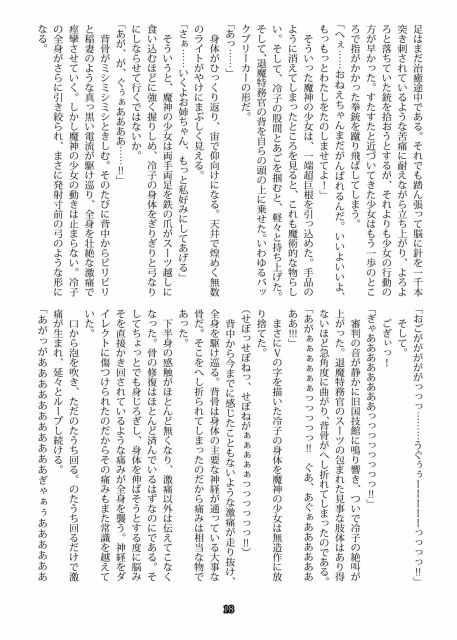 足はまだ治癒途中である。それでも踏ん張って脳に針を一千本
突き刺されているような苦痛に耐えながら立ち上がり、よろよ
ろと落ちていた銃を拾おうとするが、それよりも少女の行動の
方が早かった。すたすたと近づいてきた少女はもう一歩のとこ
ろで指がかかった拳銃を蹴り飛ばしてしまう。
「へぇ……おねえちゃんまだがんばれるんだ。いいよいいよ、
もっともっとわたしをたのしませてよ！」
そういった魔神の少女は、一端超巨根を引っ込めた。手品の
ように消えてしまったところを見ると、これも魔術的な物らし
い。そして、冷子の股間とあごを掴むと、軽々と持ち上げた。
そして、退魔特務官の背を自らの頭の上に乗せた。いわゆるバッ
クブリーカーの形だ。
「あっ……」
身体がひっくり返り、宙で仰向けになる。天井で煌めく無数
のライトがやけにまぶしく見える。
「さぁ……いくよお姉ちゃん、もっと私好みにしてあげる」
そういうと、魔神の少女は両手両足を鉄の爪がスーツ越しに
食い込むほどに強く握りしめ、冷子の身体をぎりぎりと弓なり
にしならせて行くではないか。
「あが、が、ぐぅぁああああ……!!」
背骨がミシミシミシときしむ。そのたびに背中からビリビリ
と稲妻のような真っ黒い電流が駆け巡り、全身を壮絶な激痛で
痙攣させていく。しかし魔神の少女の動きは止まらない。冷子
の全身がさらに引き絞られ、まさに発射寸前の弓のような形に
なる。
「おごがががががっっっ……うぐぅぅーーーーーっっっ!!」
そして。
ごぎぃっ！
「ぎゃああああああああっっっっっっっっっっ!!」
審判の音が静かに旧国技館に鳴り響き、ついで冷子の絶叫が
上がった。退魔特務官のスーツの包まれた見事な肢体はあり得
ないほど急角度に曲がり、背骨がへし折れてしまったのである。
「あがぁぁぁぁぁぁっっっっっ!!　ぐあ、あぐぁああああああ
ああ!!」
まさにＶの字を描いた冷子の身体を魔神の少女は無造作に放
り捨てた。
（せぼっせぼねっ、せぼねがぁぁぁぁぁっっっっっっ!!）
背中から今までに感じたこともないような激痛が走り抜け、
全身を駆け巡る。背骨は身体の主要な神経が通っている大事な
骨だ。そこをへし折られてしまったのだから痛みは相当な物で
あった。
下半身の感触がほとんど無くなり、激痛以外は伝えてこなく
なった。骨の修復はほとんど済んでいるはずなのにである。そ
してちょっとでも身じろぎし、身体を伸ばそうとする度に脳み
そを直接かき回されているような痛みが全身を襲う。神経をダ
イレクトに傷つけられたのだからその痛みもまた常識を越えて
いた。
口から泡を吹き、ただのたうち回る。のたうち回るだけで激
痛が生まれ、延々とループし続ける。
「あがっがああああああああああああぎゃぁぅああああああ
18